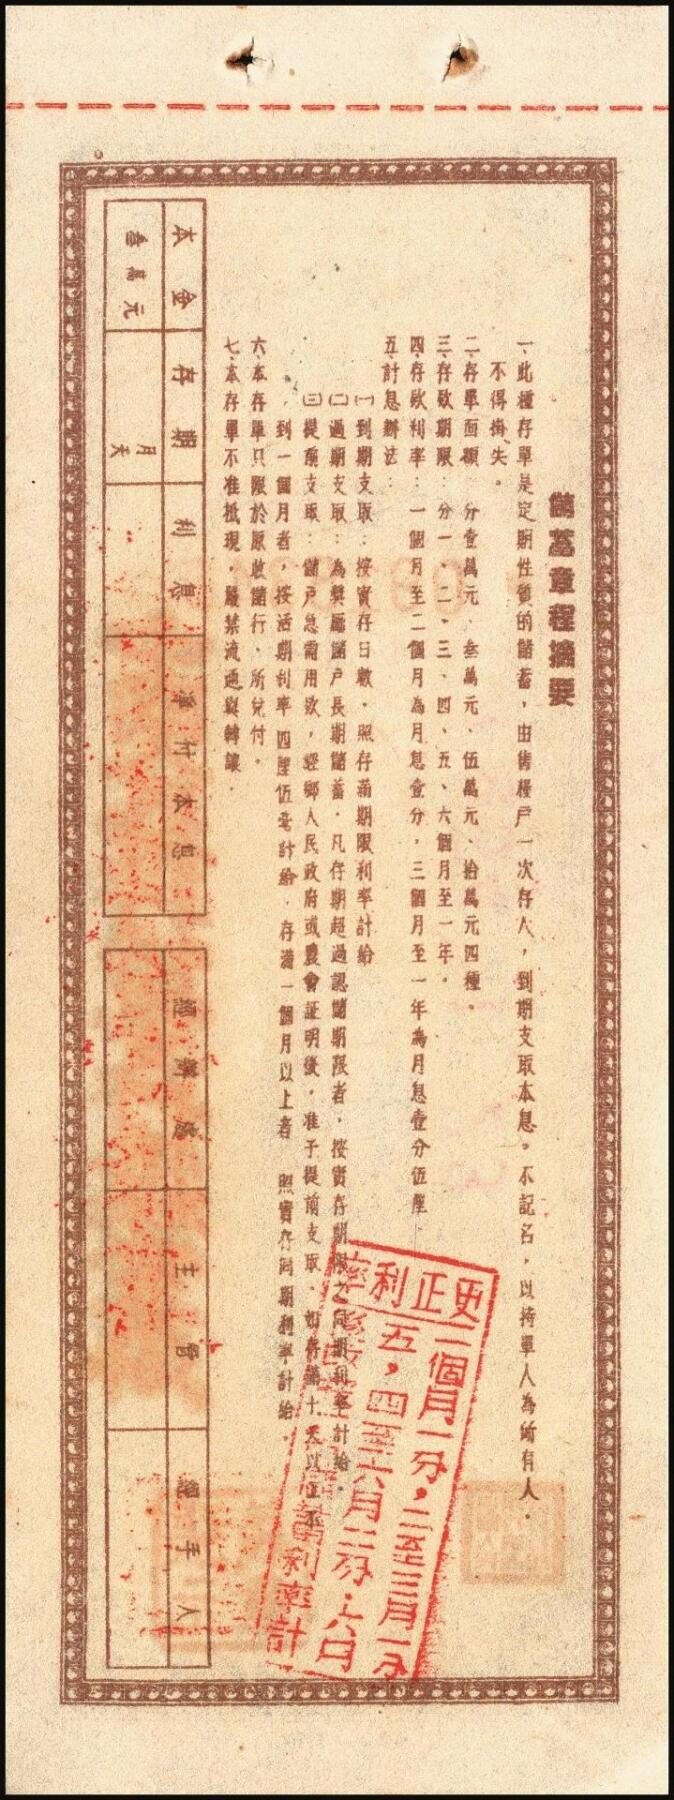 儲蓄章程摘要
一、此種存單是定期性質的儲蓄，由售樓戶一次存入，到期支取本息。不記名，以持單人為所有人，
不得掛失。
二、存單面額：分壹萬元、叁萬元、伍萬元、拾萬元四種。
三、存欵期限：分一、二、三、四、五、六個月至一年。
四、存欵利率：一個月至二個月為月息壹分，三個月至一年為月息壹分伍厘。
五、計息辦法：
(一)到期支取：按實存日數，照存滿期限利率計給
(二)過期支取：為奬勵儲戶長期儲蓄，凡存期超過認儲期限者，按實存期限之同期利率計給。
(三)提前支取：儲戶急需用欵，經鄉人民政府或農會証明後，准予提前支取，如存儲十天以上不
到一個月者，按活期利率四厘伍毫計給，存滿一個月以上者 照實存同期利率計給。
六、本存單只限於原收儲行、所兌付。
七、本存單不准抵現，嚴禁流通與轉讓。
本金 存期 利息 淨付本息
叁萬元 月 天
主管 經手人
更正利率
一個月一分，二至三月一分
五，四至六月二分，六月
利率計